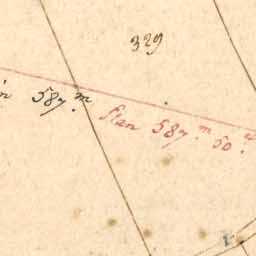 329
587.m
Plan 587.m 50.c